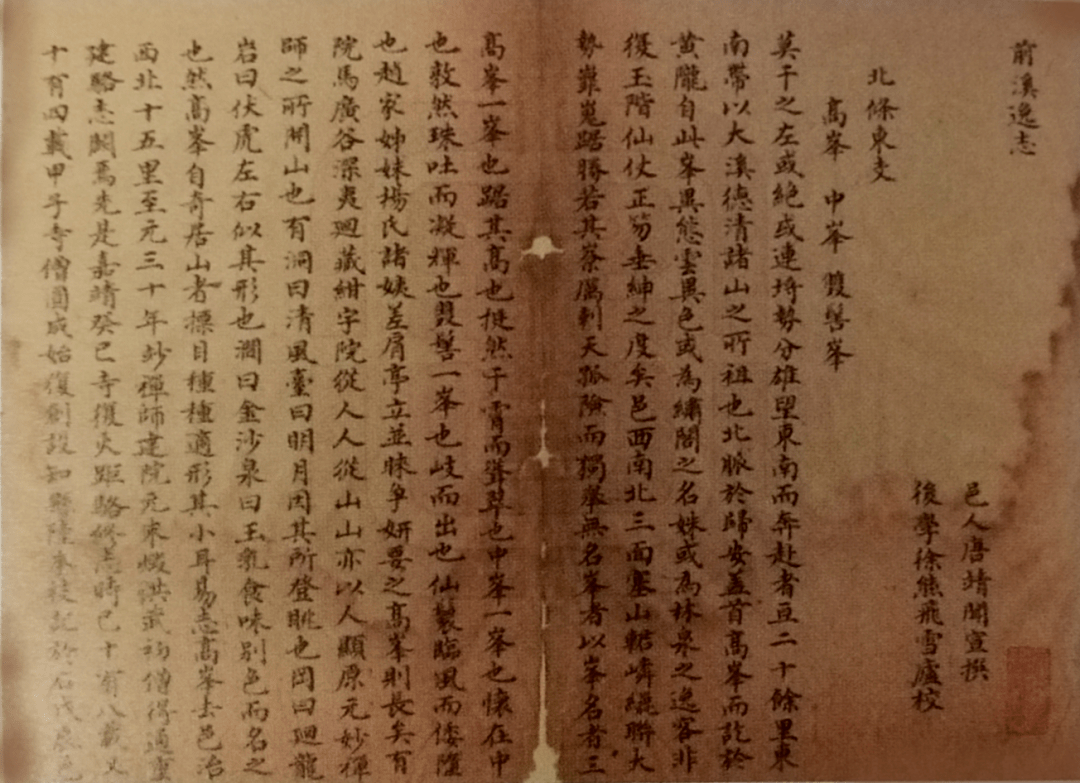 前溪逸志
邑人唐靖聞宣撰
後學徐熊飛雪廬校
北條東支
高峯 中峯 雙髻峯
莫干之左或絶或連埼勢分雄望東南而奔赴者亘二十餘里東
南帶以大溪德清諸山之所祖也北脈於歸安蓋首高峯而訖於
黃隴自此峯異態雲異色或為繡閣之名姝或為林泉之逸客非
復玉階仙仗正笏垂紳之度矣邑西南北三面塞山轔嶙纚聯大
勢巃嵸踞勝若其嶚厲刺天孤險而獨舉無名峯者以峯名者三
高峯一峯也踞其高也挺然干霄而聳翠也中峯一峯也懷在中
也敦然珠吐而凝輝也雙髻一峯也岐而出也仙鬟臨風而倭墮
也趙家姊妹楊氏諸姨差肩亭立並睞爭妍要之高峯則長矣有
院焉廣谷深夷迴藏紺宇院從人人從山山亦以人顯原元妙禪
師之所開山也有洞曰清風臺曰明月因其所登眺也岡曰迴龍
岩曰伏虎左右似其形也澗曰金沙泉曰玉乳食味別色而名之
也然高峯自奇居山者標目種種適形其小耳易志高峯去邑治
西北十五里至元三十年妙禪師建院元末燬洪武初僧得通重
建駱志闕焉先是嘉靖癸巳寺復災距駱修志時已十有八載又
十有四載甲子寺僧圓成始復創設知縣